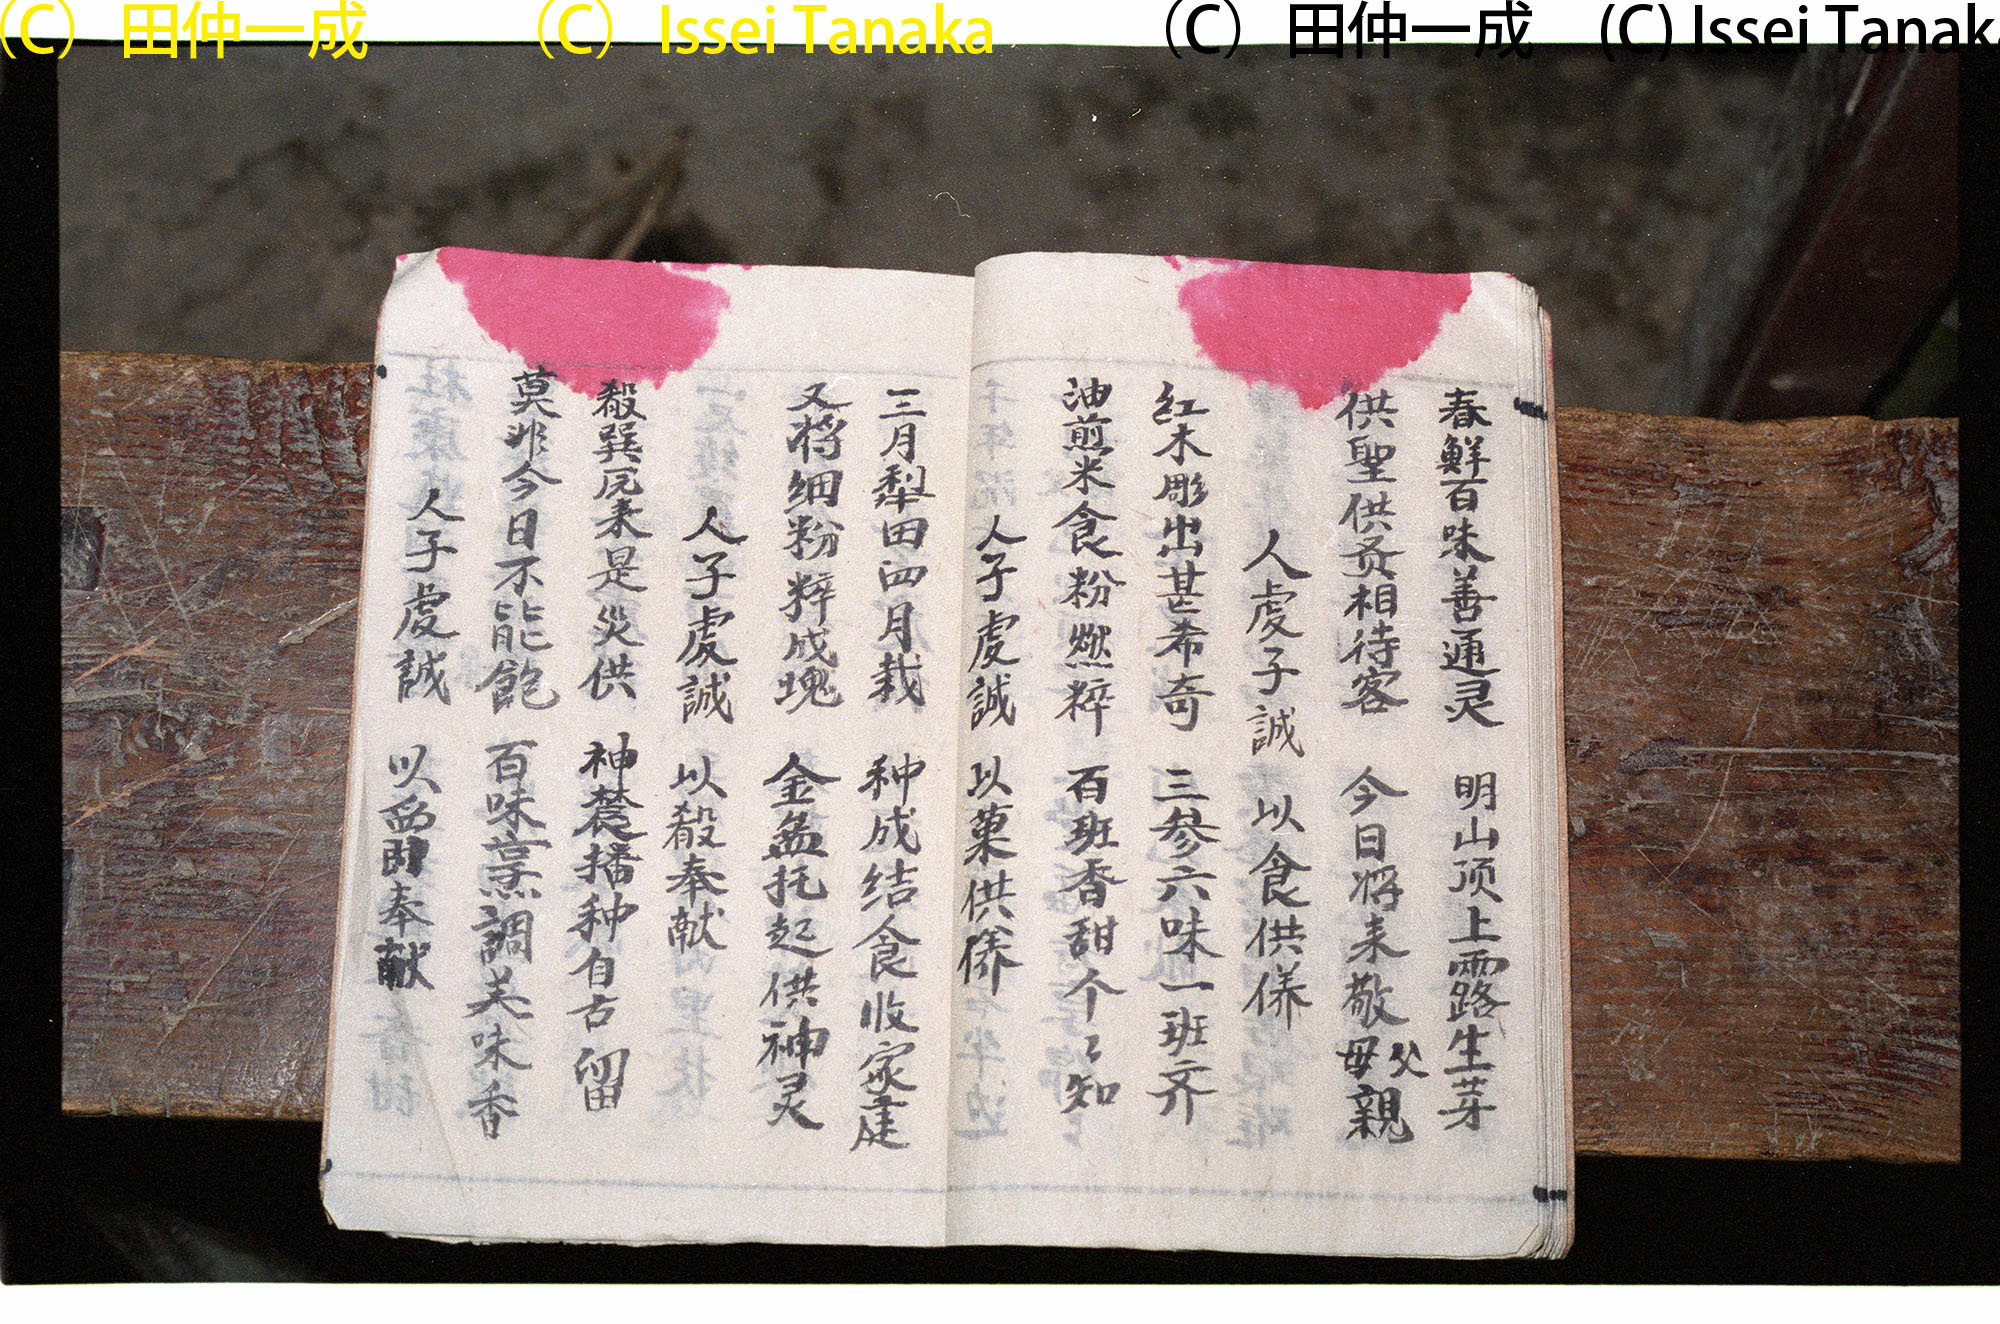 (C) 田仲一成 (C) Issei Tanaka (C) 田仲一成 (C) Issei Tanaka
春鮮百味善通灵 明山顶上露生芽
供聖供贤相待客 今日将来敬父母親
人虔子誠 以食供养
红木彫出甚希奇 三参六味一班齐
油煎米食粉燃粹 百班香甜个〻知
人子虔誠 以菓供养
三月犁田四月栽 种成结食收家庭
又将细粉粹成塊 金盆托起供神灵
人子虔誠 以殽奉献
殽巽原来是災供 神農播种自古留
莫非今日不能飽 百味烹調美味香
人子虔誠 以奉献